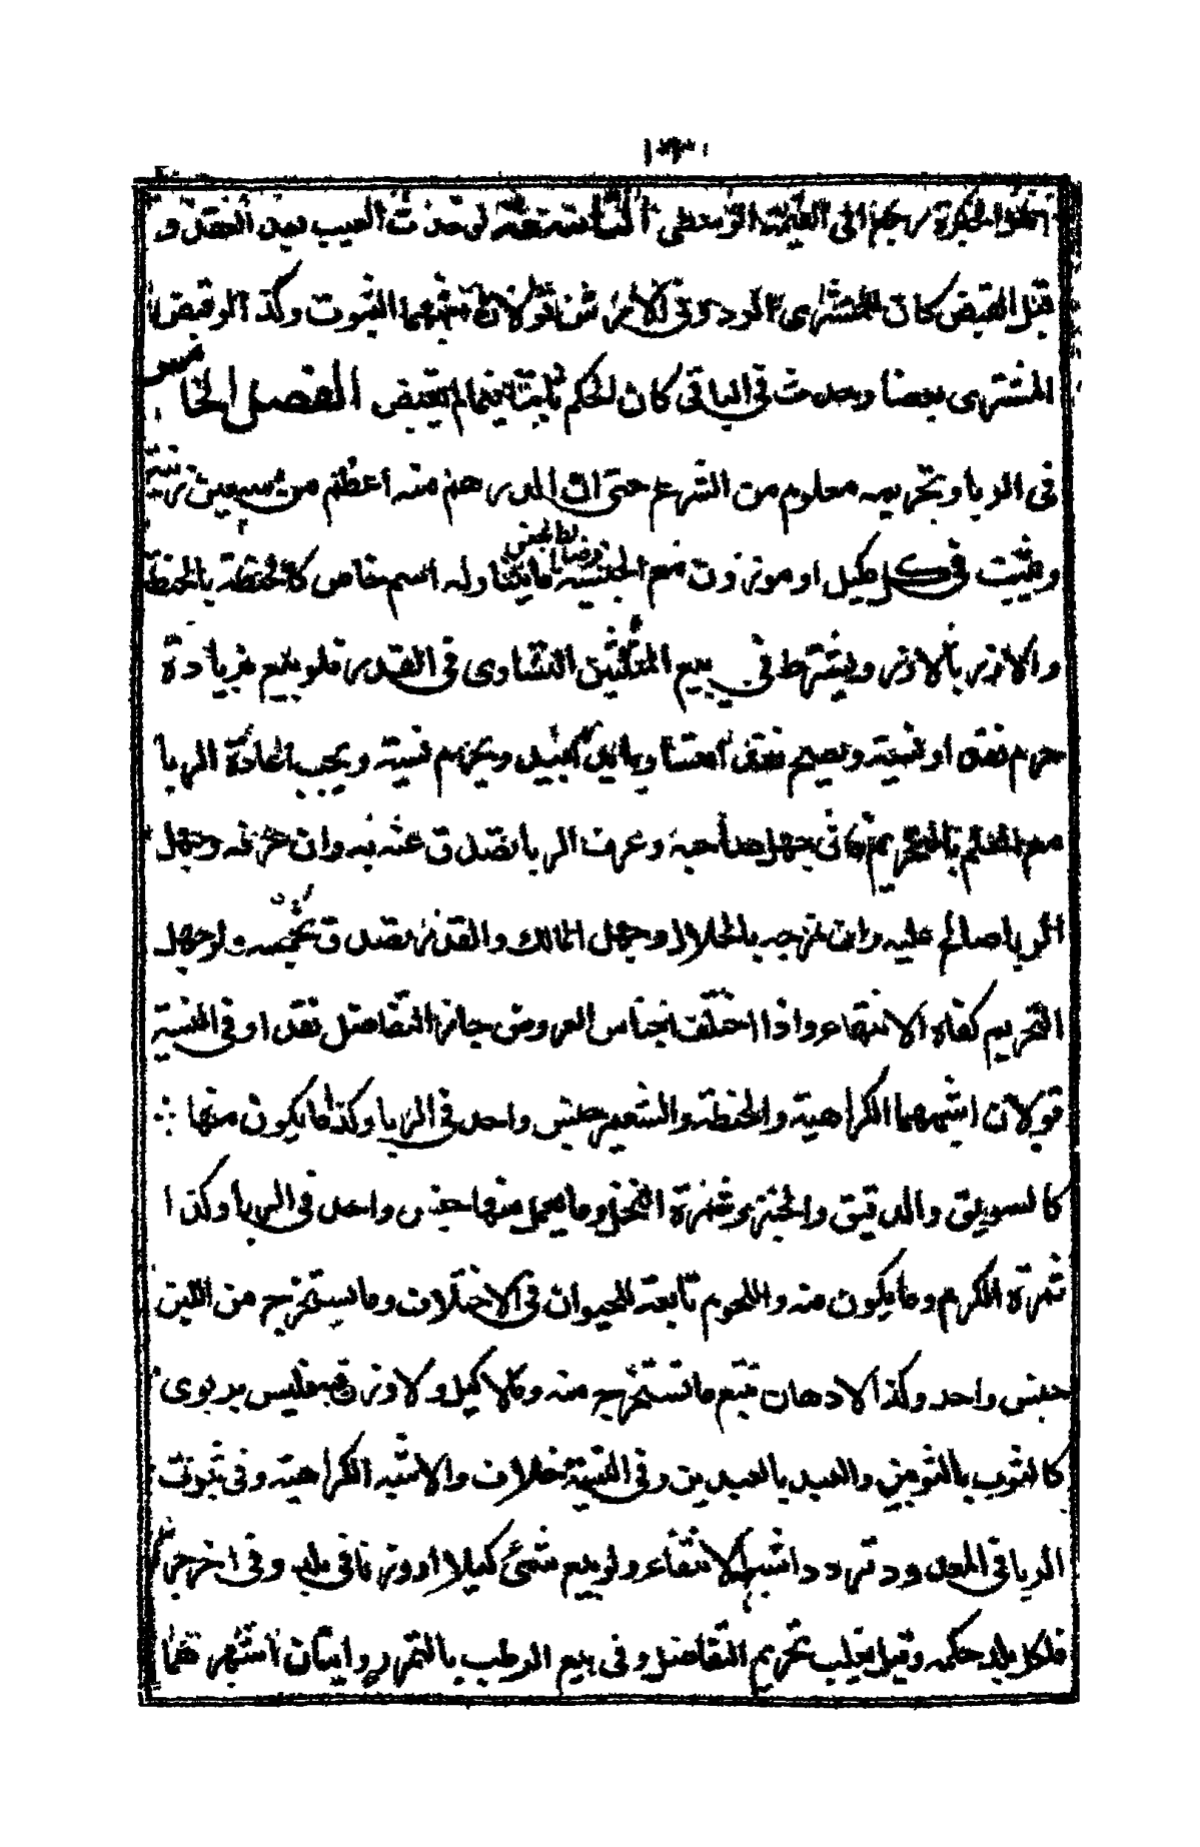 اهل الخبرة رجع الى القيمة الوسطى الثالثة لو حدث العيب بعد العقد و
قبل القبض كان للمشترى الرد وفى الارش قولان اشبههما الثبوت وكذا لو قبض
المشترى بعضا وحدث فى الباقى كان الحكم ثابتا فيما لم يقبض الفصل الخامس
فى الربا وتحريمه معلوم من الشرع حتى ان الدرهم منه اعظم من سبعين زنية
ويثبت فى كل مكيل او موزون مع الجنسية وضابط الجنس ما يتناوله اسم خاص كالحنطة بالحنطة
والارز بالارز ويشترط فى بيع المثلين التساوى فى القدر فلو بيع بزيادة
حرم نقدا ونسية ويصح متساويا يدا بيد ويحرم نسية ويجب اعادة الربا
مع العلم بالتحريم فان جهل صاحبه وعرف الربا تصدق عنه به وان عرفه وجهل
الربا صالح عليه وان مزجه بالحلال وجهل المالك والقدر تصدق بخمسه ولو جهل
التحريم كفاه الانتهاء واذا اختلف اجناس العروض جاز التفاضل نقدا وفى النسية
قولان اشبههما الكراهية والحنطة والشعير جنس واحد فى الربا وكذا ما يكون منها
كالسويق والدقيق والخبز وثمرة النخل وما يعمل منها جنس واحد فى الربا وكذا
ثمرة الكرم وما يكون منه واللحوم تابعة للحيوان فى الاختلاف وما يستخرج من اللبن
جنس واحد وكذا الادهان تتبع ما تستخرج منه وما لا كيل ولا وزن فيه فليس بربوى
كالثوب بالثوبين والعبد بالعبدين وفى النسية خلاف والاشبه الكراهية وفى ثبوت
الربا فى المعدود تردد اشبهه الانتفاء ولو بيع شئ كيلا او وزنا فى بلد وفى اخر جزافا
فلكل بلد حكمه وقيل يغلب تحريم التفاضل وفى بيع الرطب بالتمر روايتان اشهرهما